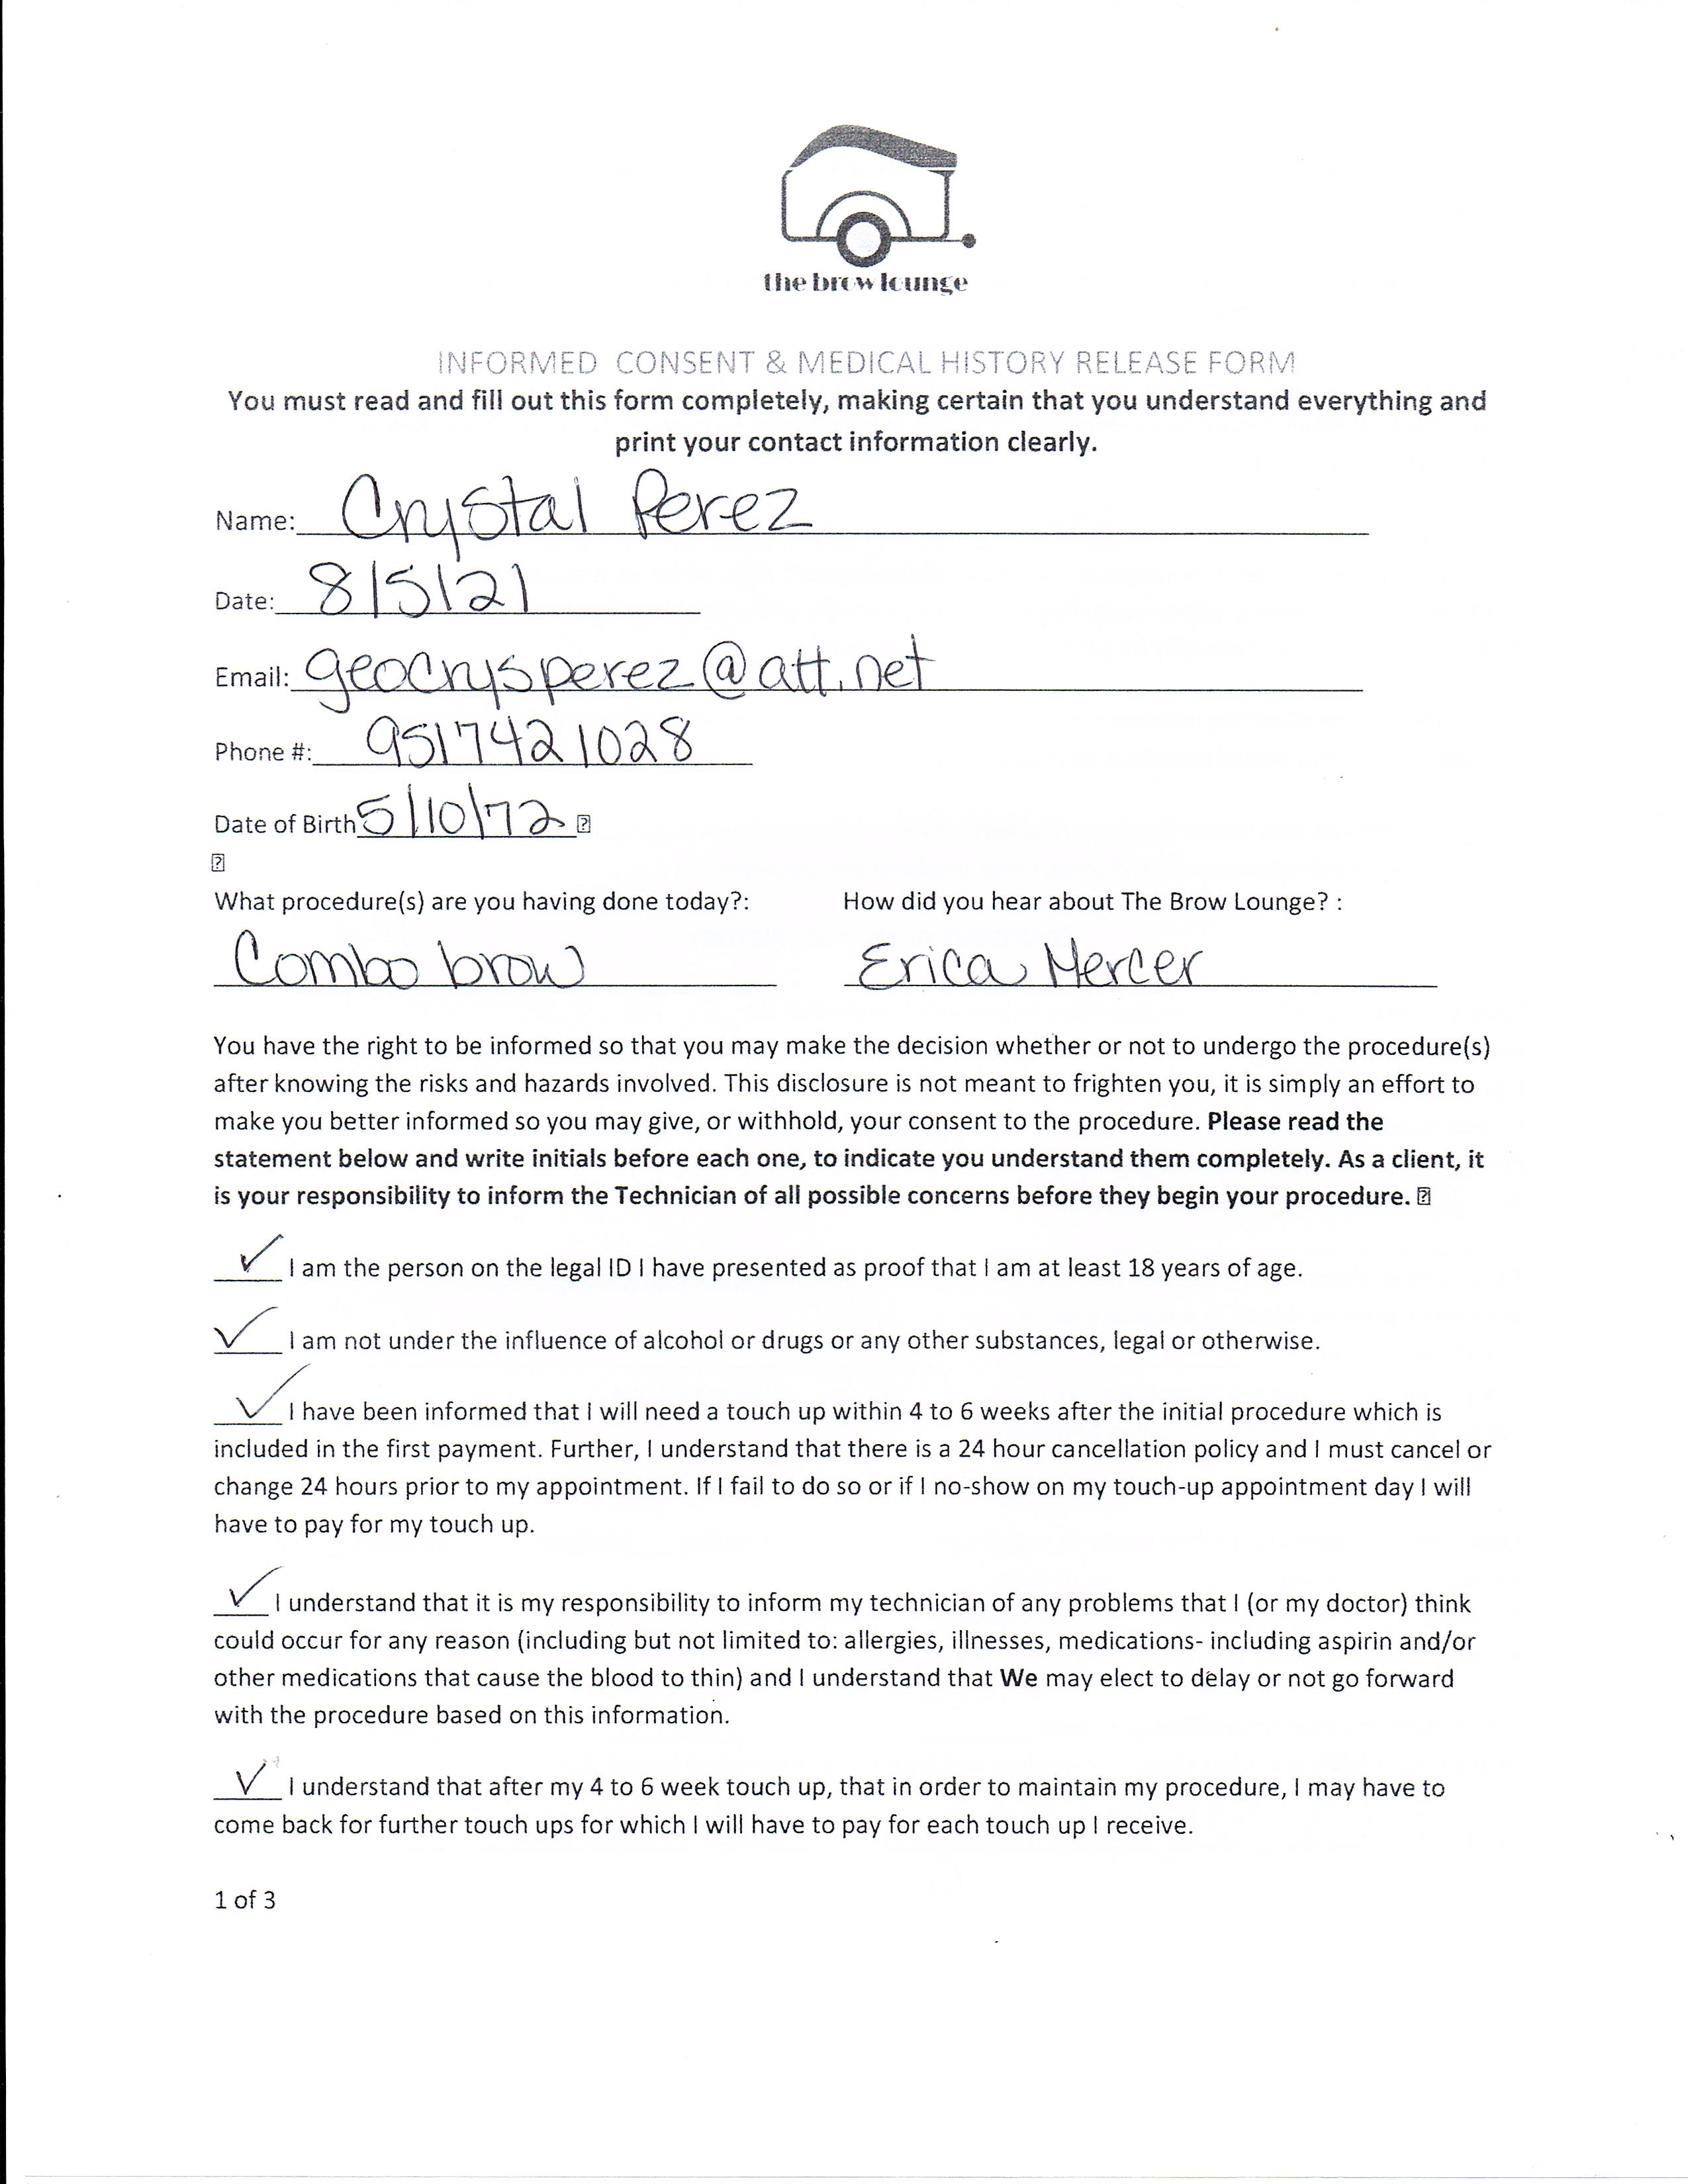 the brow lounge
INFORMED CONSENT & MEDICAL HISTORY RELEASE FORM
You must read and fill out this form completely, making certain that you understand everything and
print your contact information clearly.
Name: Crystal Perez
Date: 8/5/21
Email: geocrysperez@att.net
Phone #: 9517421028
Date of Birth 5/10/72
What procedure(s) are you having done today?: How did you hear about The Brow Lounge? :
Combo brow Erica Mercer
You have the right to be informed so that you may make the decision whether or not to undergo the procedure(s)
after knowing the risks and hazards involved. This disclosure is not meant to frighten you, it is simply an effort to
make you better informed so you may give, or withhold, your consent to the procedure. Please read the
statement below and write initials before each one, to indicate you understand them completely. As a client, it
is your responsibility to inform the Technician of all possible concerns before they begin your procedure.
✓ I am the person on the legal ID I have presented as proof that I am at least 18 years of age.
✓ I am not under the influence of alcohol or drugs or any other substances, legal or otherwise.
✓ I have been informed that I will need a touch up within 4 to 6 weeks after the initial procedure which is
included in the first payment. Further, I understand that there is a 24 hour cancellation policy and I must cancel or
change 24 hours prior to my appointment. If I fail to do so or if I no-show on my touch-up appointment day I will
have to pay for my touch up.
✓ I understand that it is my responsibility to inform my technician of any problems that I (or my doctor) think
could occur for any reason (including but not limited to: allergies, illnesses, medications- including aspirin and/or
other medications that cause the blood to thin) and I understand that We may elect to delay or not go forward
with the procedure based on this information.
✓ I understand that after my 4 to 6 week touch up, that in order to maintain my procedure, I may have to
come back for further touch ups for which I will have to pay for each touch up I receive.
1 of 3